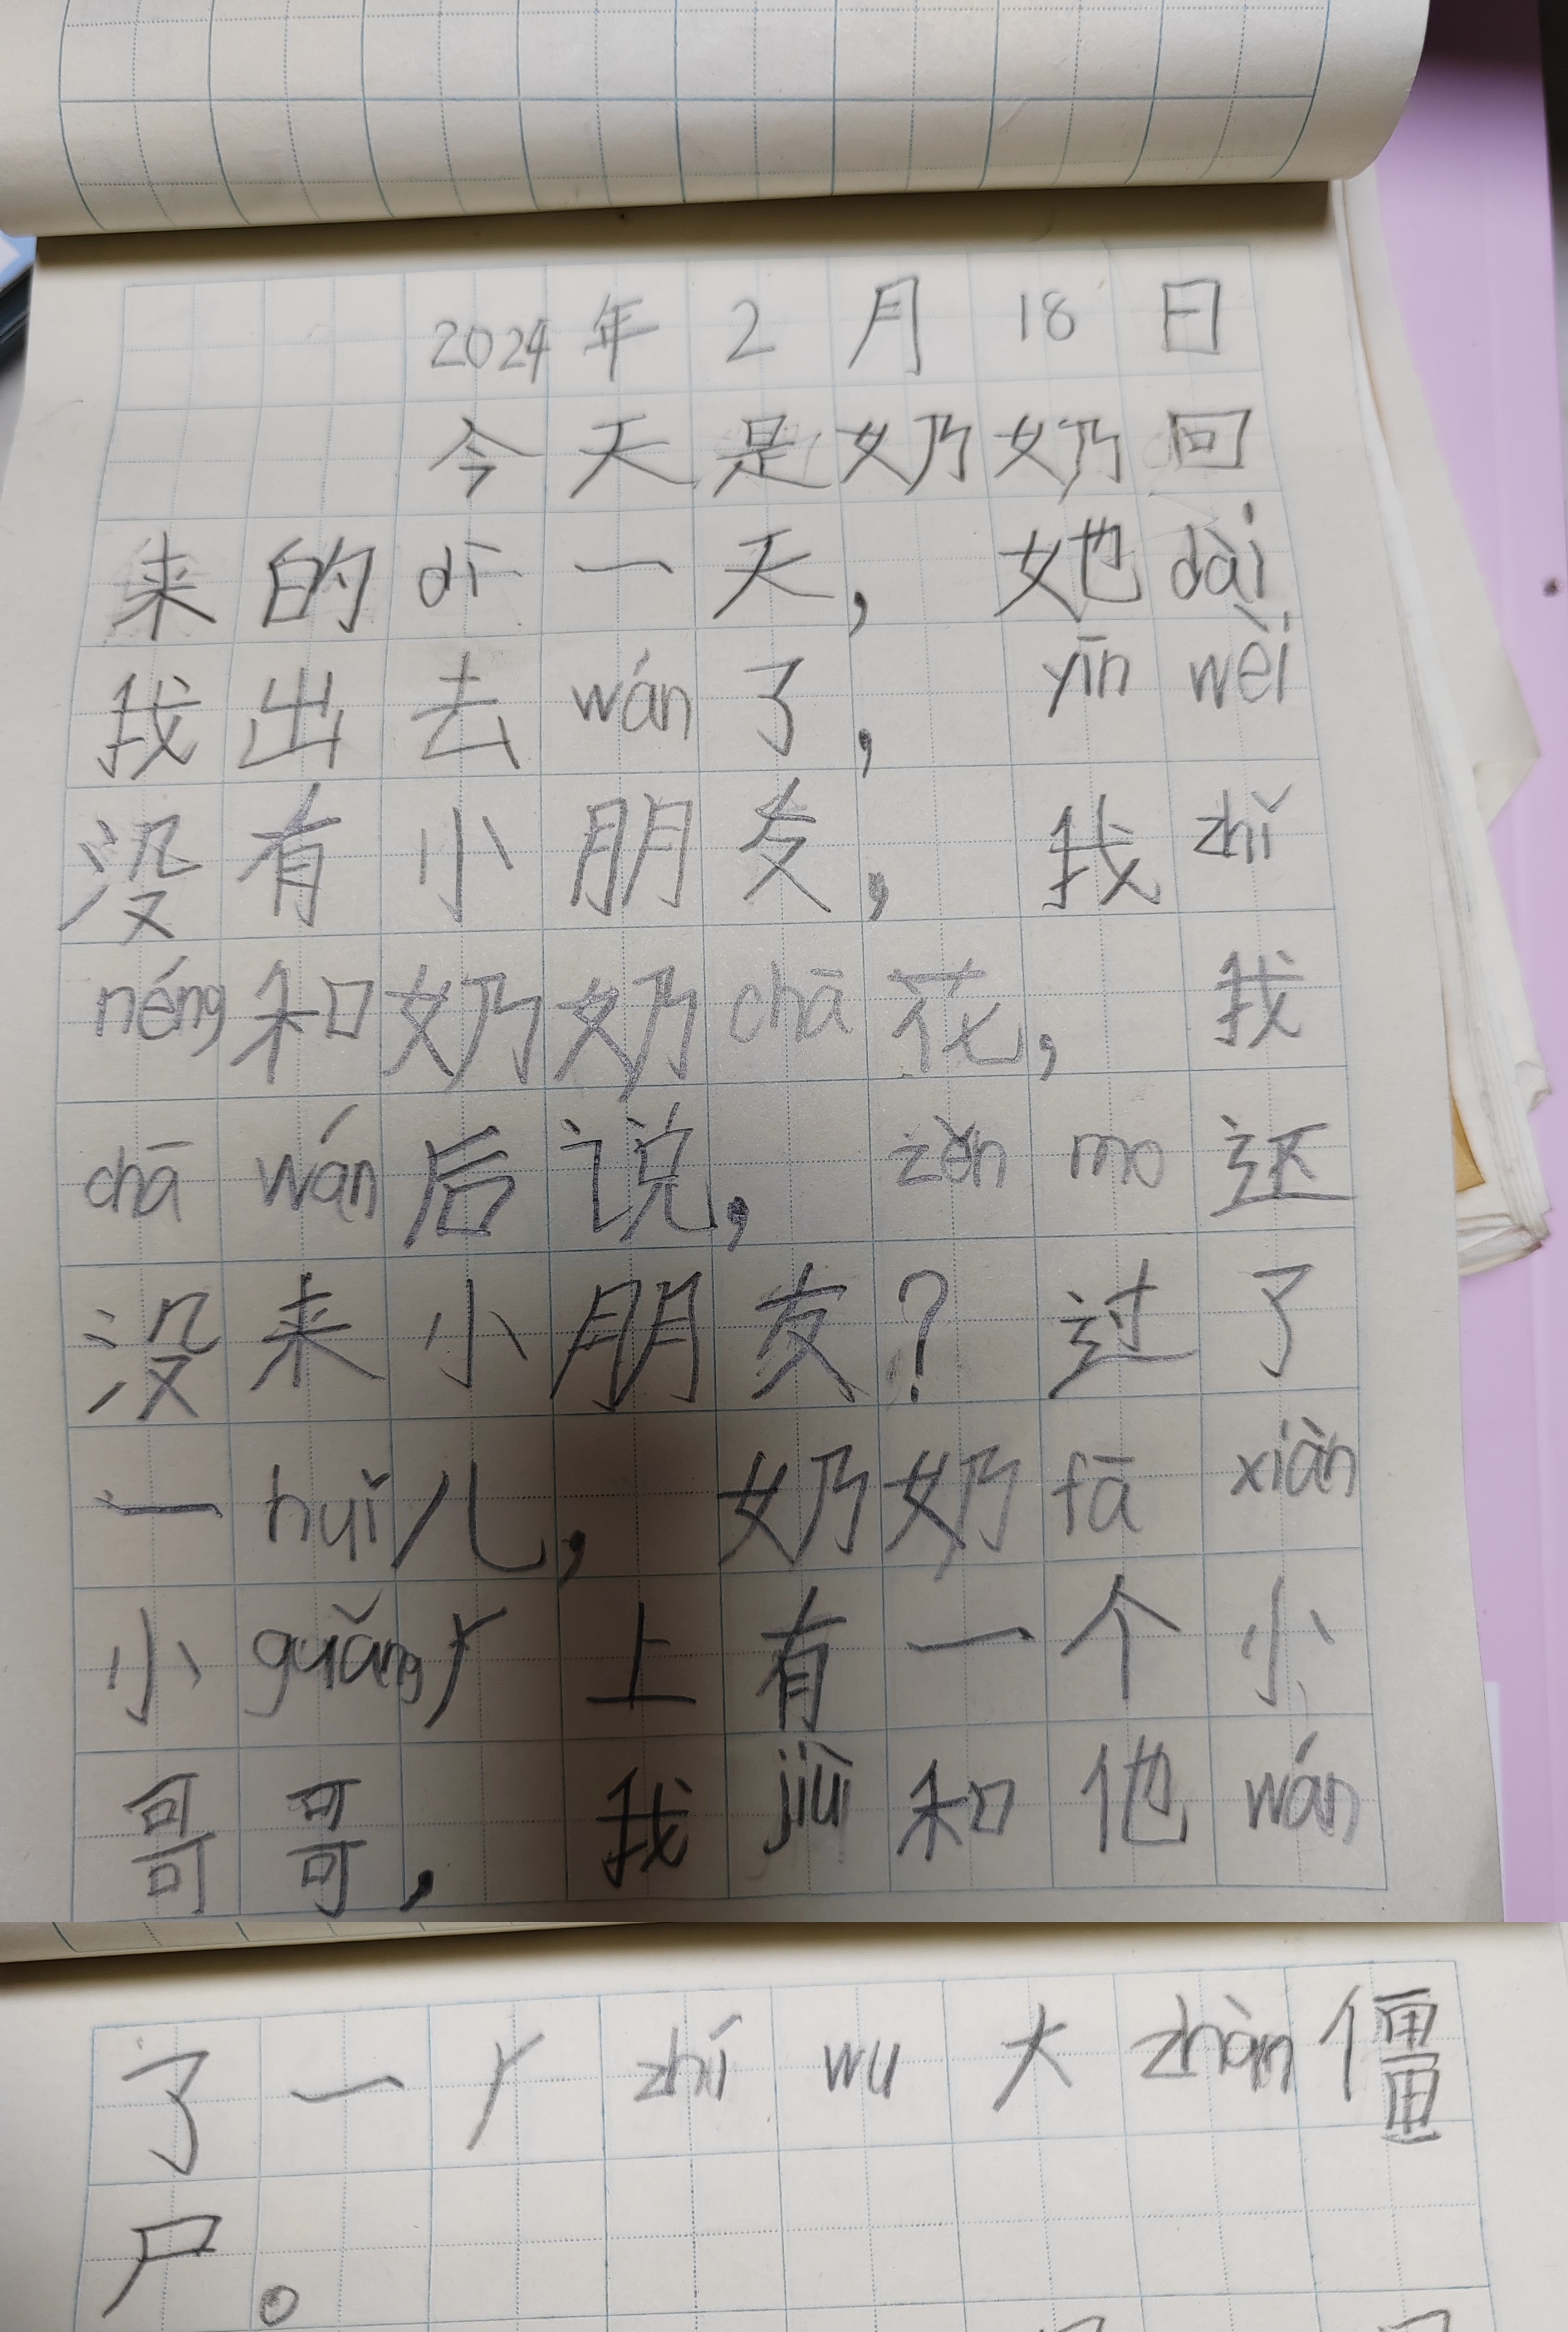 2024年2月18日
今天是奶奶回
来的dì一天，她dài
我出去wán了，yīn wèi
没有小朋友，我zhǐ
néng和奶奶chā花，我
chā wán后说，zěn mo还
没来小朋友？过了
一huǐ儿，奶奶fā xiàn
小guǎng上有一个小
哥哥，我jiù和他wán
了一 zhí wu大zhàn僵
尸。